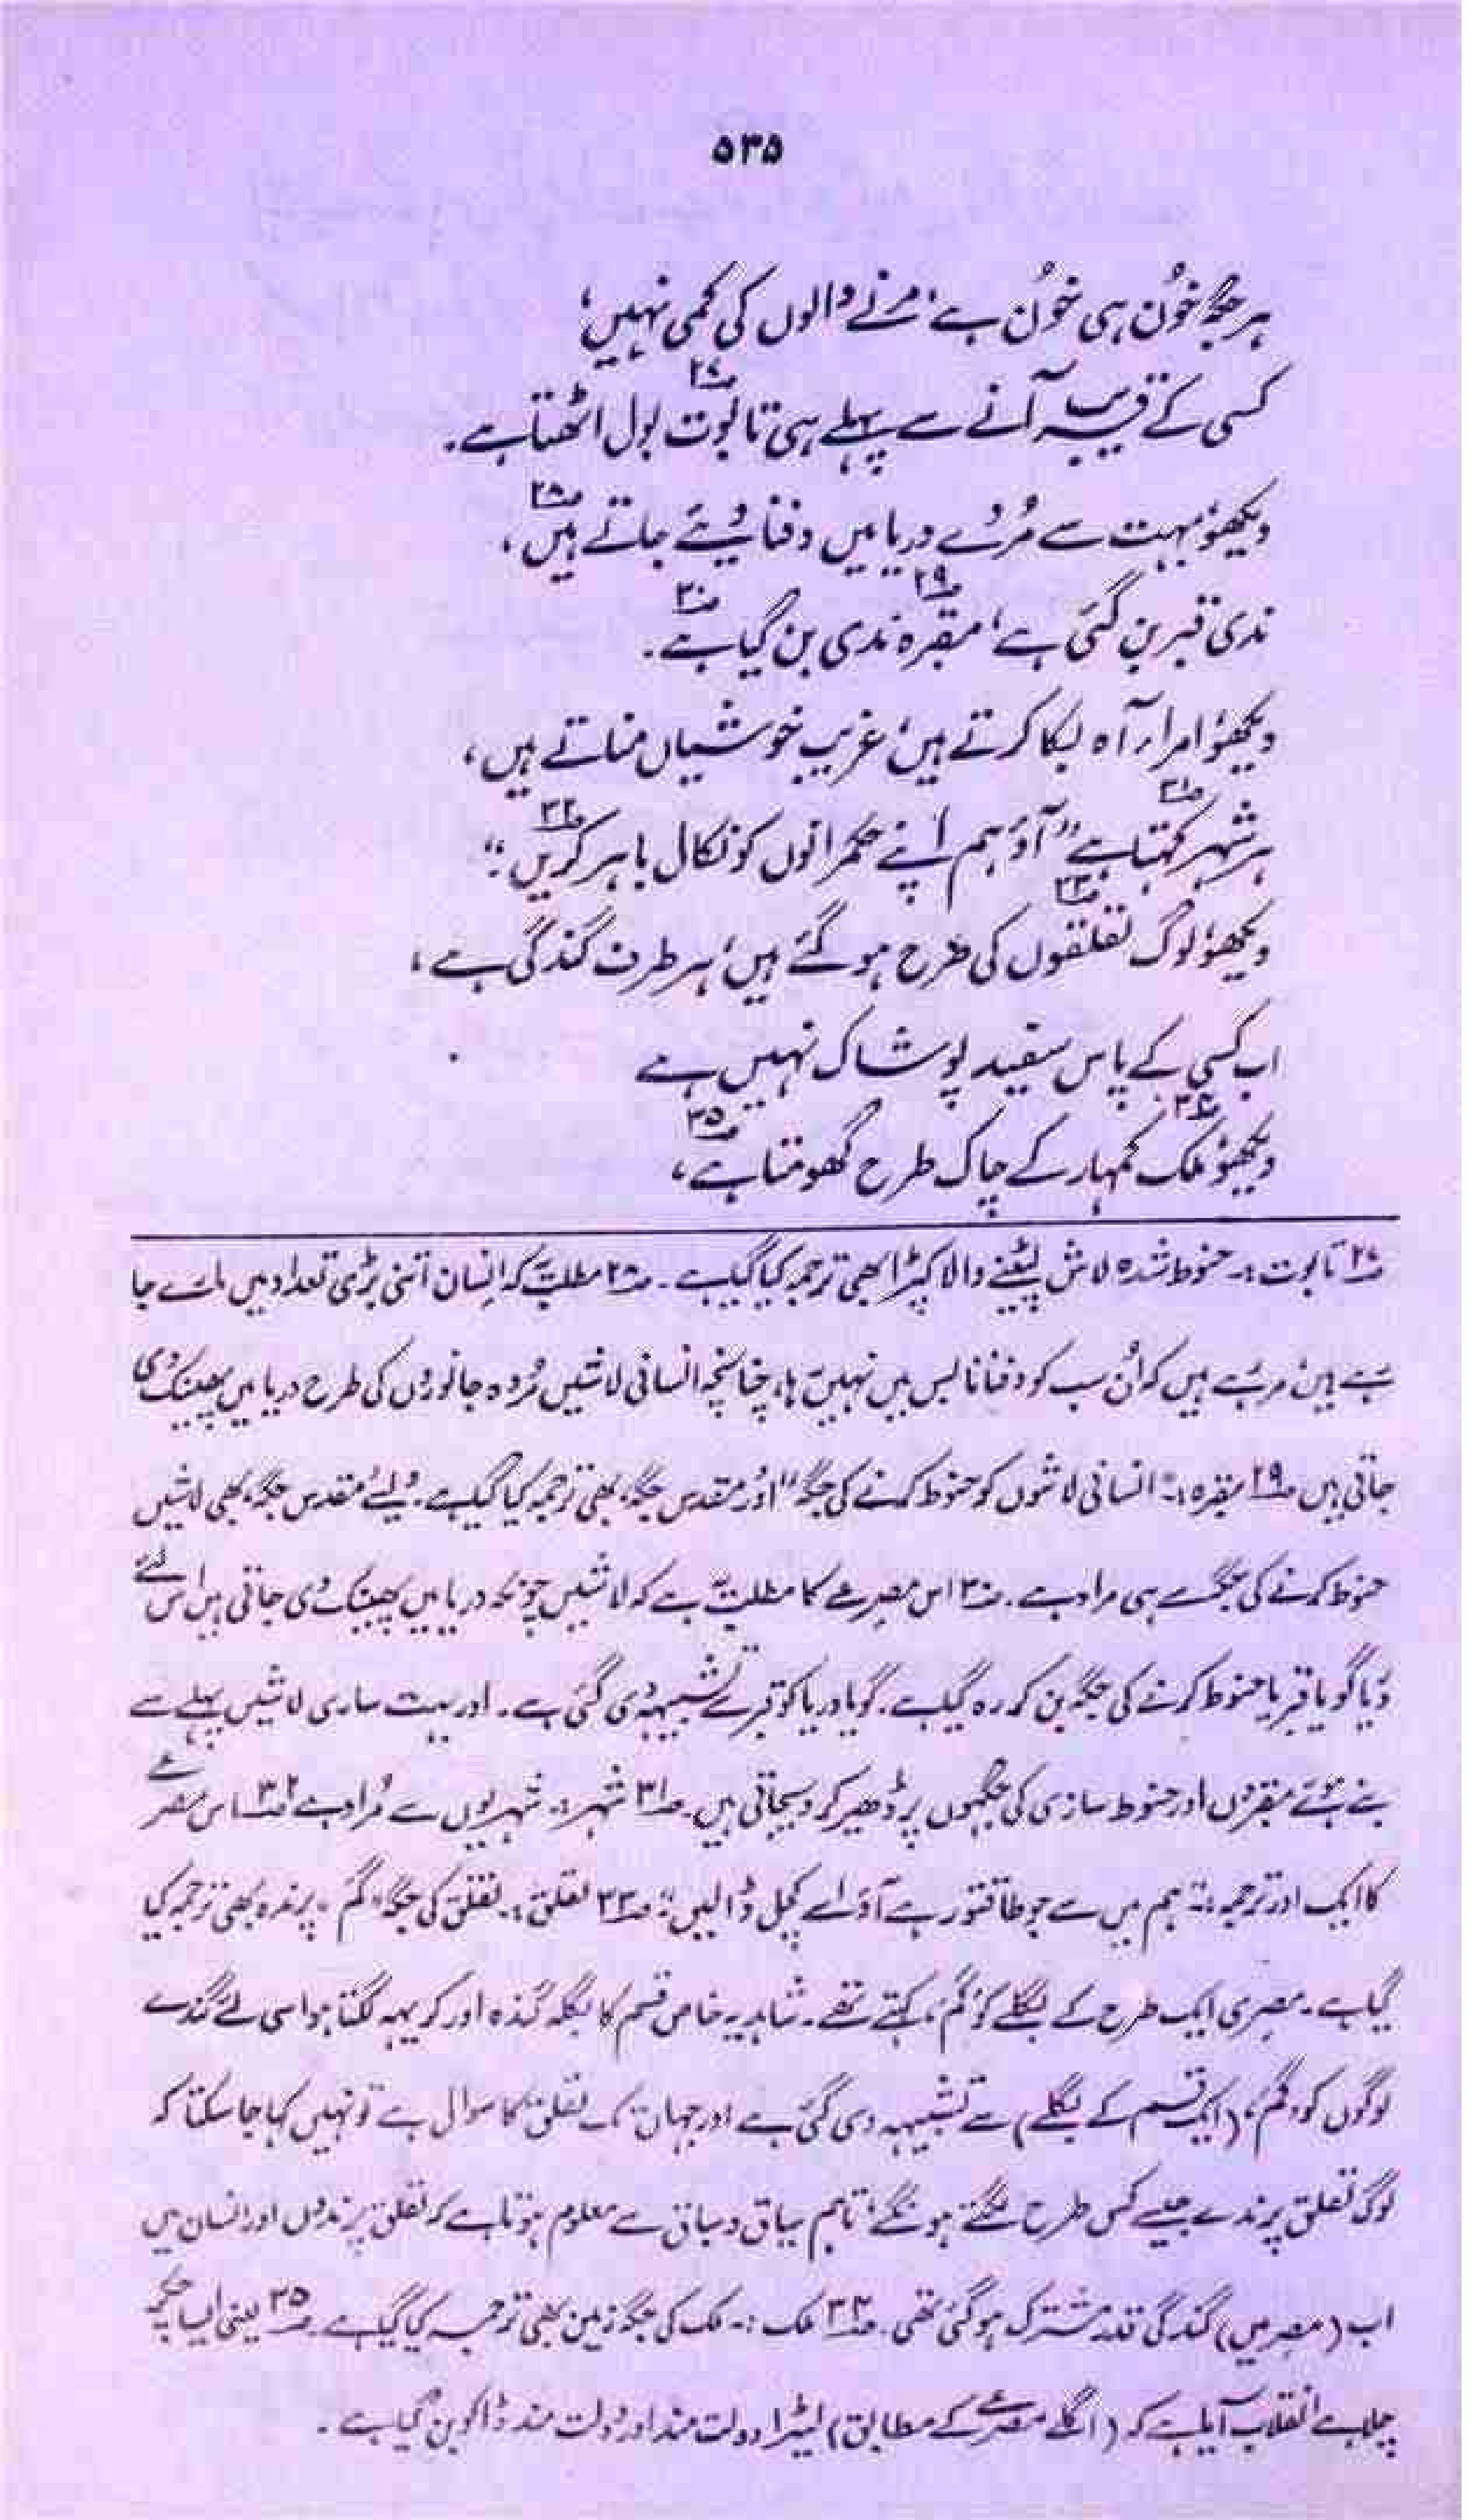 ۵۳۵
ہر جگہ خُون ہی خُون ہے، مرنے والوں کی کمی نہیں،
کسی کے قریب آنے سے پہلے ہی تابُوت بول اٹھتا ہے۔ ۲۷
دیکھو، بہت سے مُردے دریا میں دفنا دیئے جاتے ہیں ۲۸،
ندی قبر بن گئی ہے، مقبرہ ۲۹ ندی بن گیا ہے ۳۰۔
دیکھو، امراء آہ بکا کرتے ہیں، غریب خوشیاں مناتے ہیں،
ہر شہر ۳۱ کہتا ہے "آؤ ہم اپنے حکمرانوں کو نکال باہر کریں ۳۲"
دیکھو، لوگ لقلقوں ۳۳ کی طرح ہو گئے ہیں، ہر طرف گندگی ہے،
اب کسی کے پاس سفید پوشاک نہیں ہے
دیکھو، ملک ۳۴ کمہار کے چاک طرح گھومتا ہے ۳۵،
۲۷ تابوت:۔ حنوط شدہ لاش لپیٹنے والا کپڑا بھی ترجمہ کیا گیا ہے۔ ۲۸ مطلب یہ کہ انسان اتنی بڑی تعداد میں مارے جا
رہے ہیں، مر رہے ہیں کہ اُن سب کو دفنانا بس میں نہیں رہا، چنانچہ انسانی لاشیں مُردہ جانوروں کی طرح دریا میں پھینک دی
جاتی ہیں ۲۹ مقبرہ:۔ انسانی لاشوں کو حنوط کرنے کی جگہ" اور مقدس جگہ، بھی ترجمہ کیا گیا ہے۔ ویسے مقدس جگہ، بھی لاشیں
حنوط کرنے کی جگہ سے ہی مراد ہے۔ ۳۰ اس مصرعے کا مطلب یہ ہے کہ لاشیں چونکہ دریا میں پھینک دی جاتی ہیں اس لئے
دریا گویا قبر یا حنوط کرنے کی جگہ بن کر رہ گیا ہے۔ گویا دریا کو قبر سے تشبیہہ دی گئی ہے۔ اور بہت ساری لاشیں پہلے سے
بنے ہوئے مقبروں اور حنوط سازی کی جگہوں پر ڈھیر کر دی جاتی ہیں۔ ۳۱ شہر:۔ شہریوں سے مُراد ہے ۳۲ اس مصرعے
کا ایک اور ترجمہ:۔ ہم میں سے جو طاقتور ہے آؤ اسے کچل ڈالیں" ۳۳ لقلق:۔ لقلق کی جگہ "گم" پرندہ بھی ترجمہ کیا
گیا ہے۔ مصری ایک طرح کے بگلے کو "گم" کہتے تھے۔ شاید یہ خاص قسم کا بگلہ گندہ اور کریہہ لگتا ہو اسی لئے گندے
لوگوں کو "گم" (ایک قسم کے بگلے) سے تشبیہہ دی گئی ہے اور جہاں تک لقلق کا سوال ہے تو نہیں کہا جا سکتا کہ
لوگ لقلق پرندے جیسے کس طرح لگتے ہونگے، تاہم سیاق و سباق سے معلوم ہوتا ہے کہ لقلق پرندوں اور انسان میں
اب (مصر میں) گندگی قدر مشترک ہو گئی تھی۔ ۳۴ ملک:۔ ملک کی جگہ زمین بھی ترجمہ کیا گیا ہے۔ ۳۵ یعنی ایسا چکر
چلا ہے انقلاب آیا ہے کہ (اگلے مصرعے کے مطابق) لٹیرا دولت مند اور دولت مند ڈاکو بن گیا ہے۔